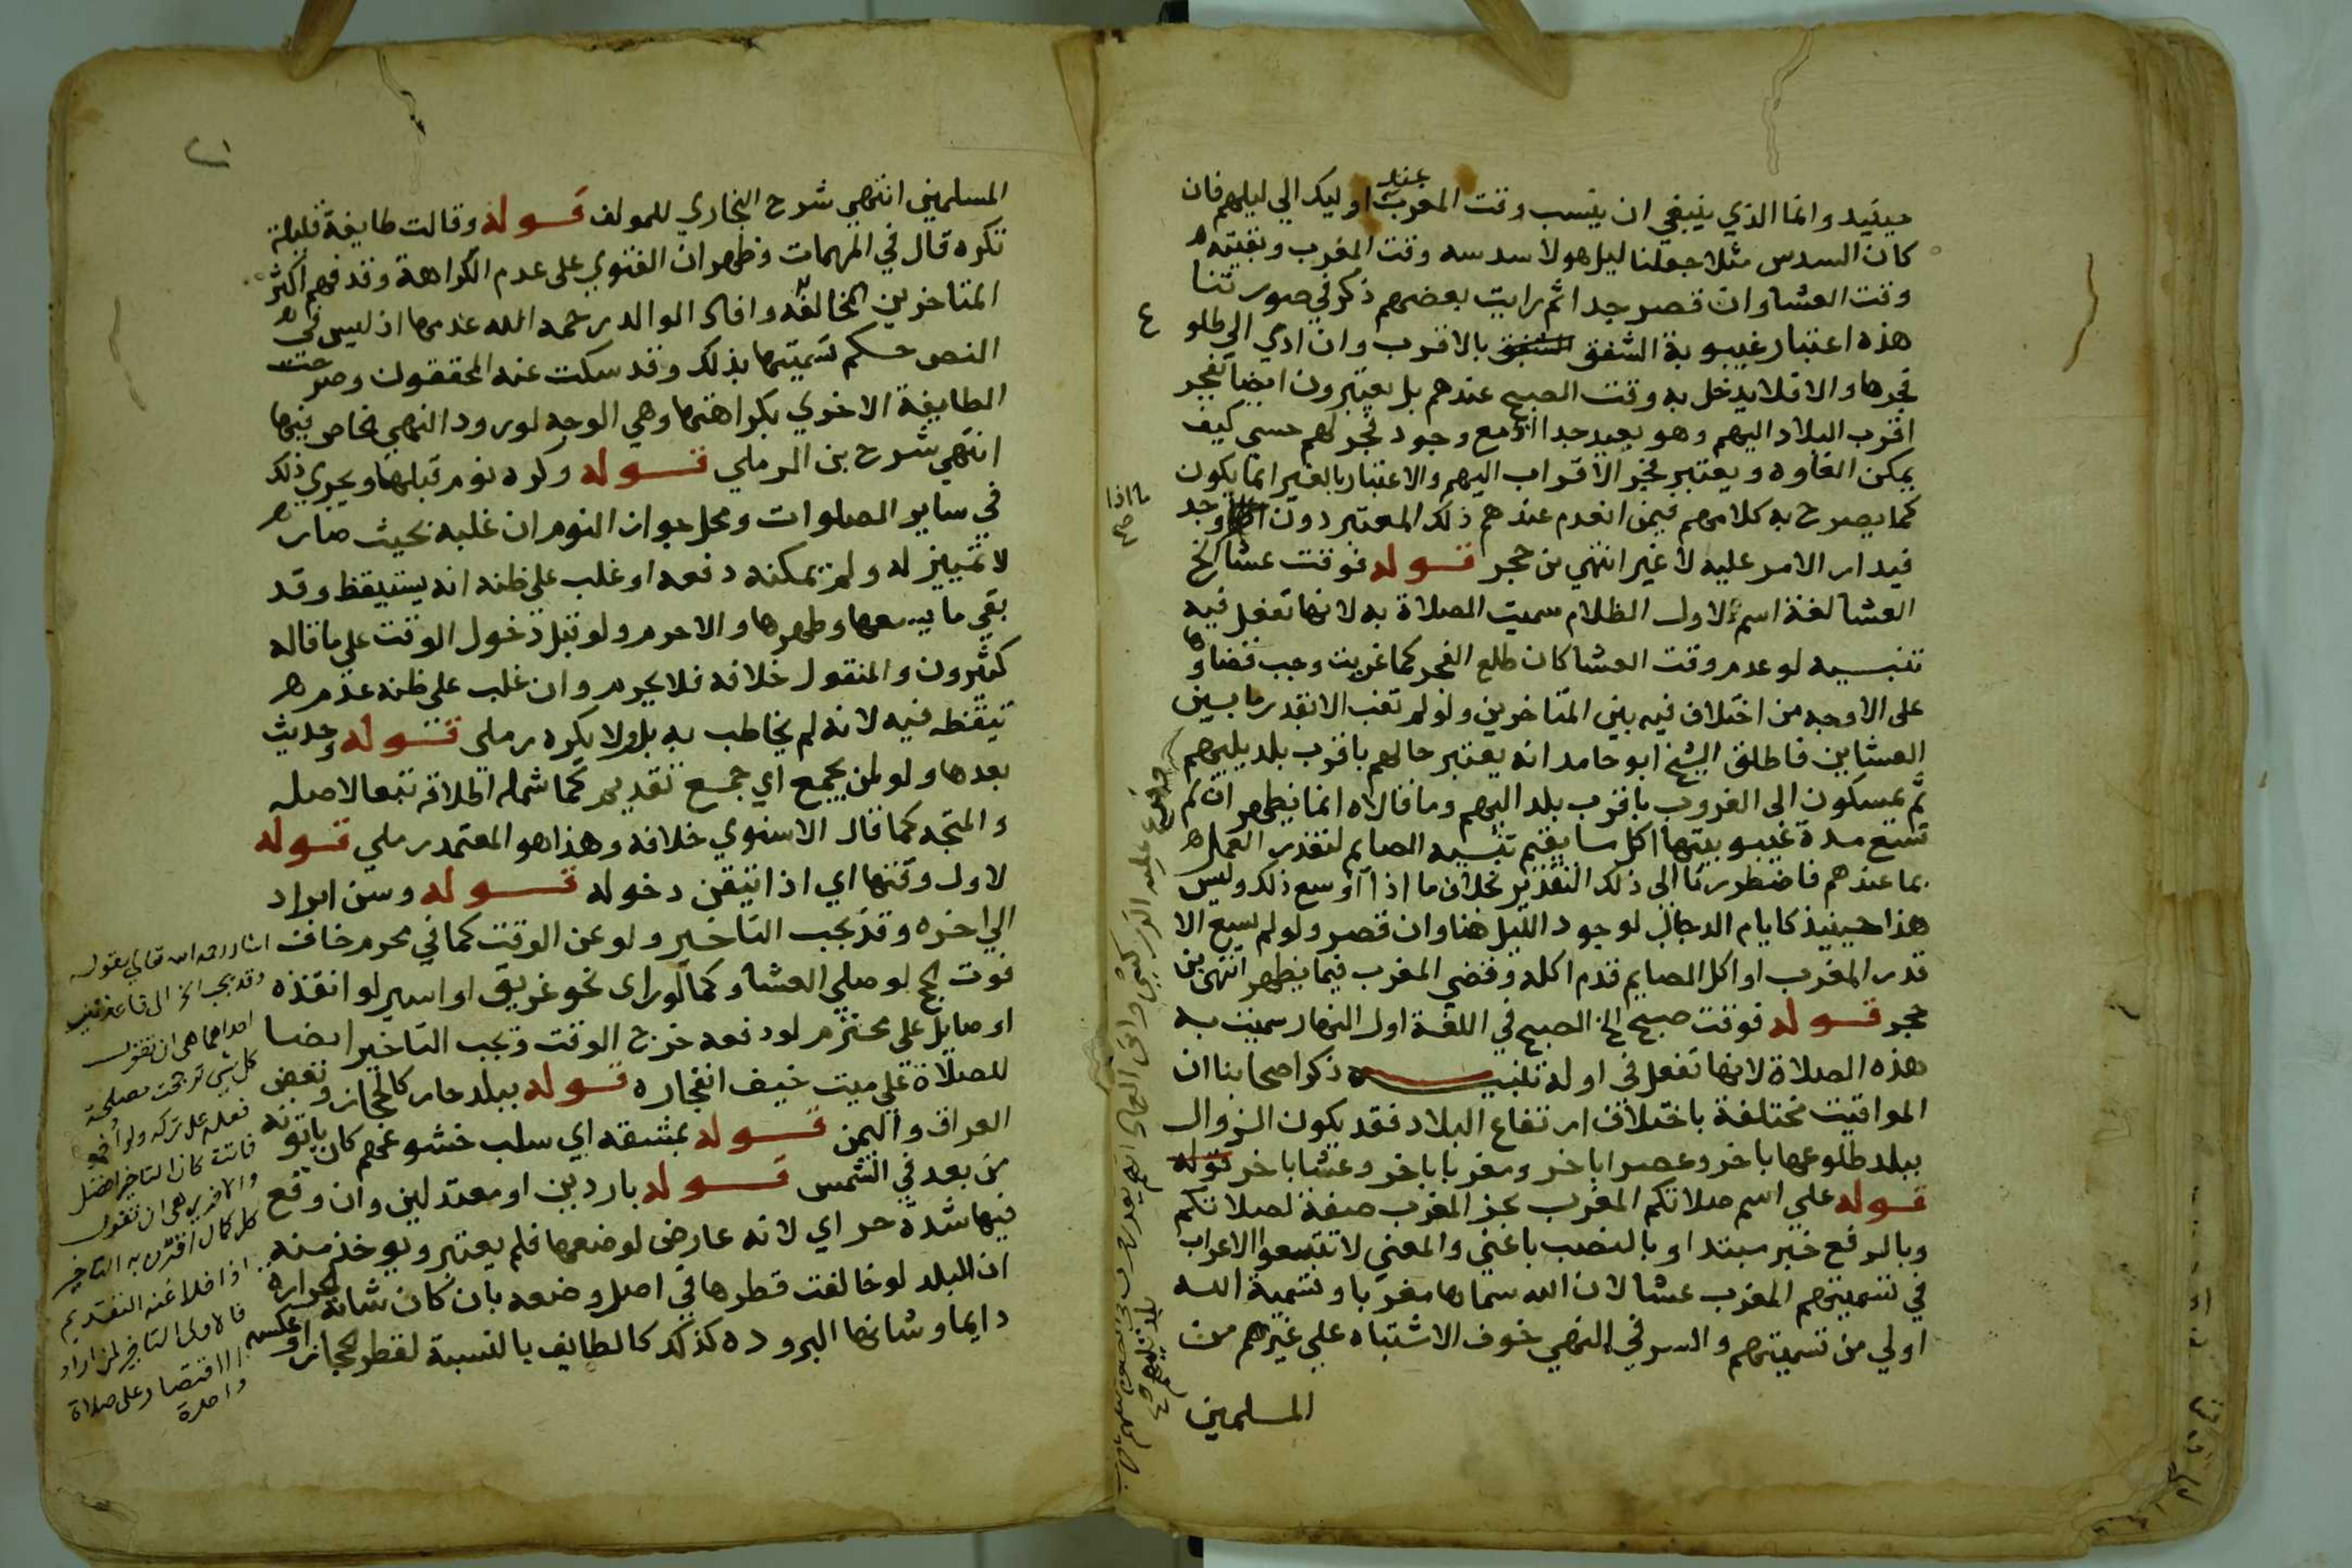 حينيد وانما الذي ينبغي ان ينسب وقت المغرب عند اوليك الي ليلهم فان
كان السدس مثلا جعلنا ليل هولا سدسه وقت المغرب وبقيته
وقت العشا وان قصر جدا ثم رايت بعضهم ذكر في صورتنا
هذه اعتبار غيبوبة الشفق بالاقرب وان ادي الي طلوع
فجرها والا فلا يدخل به وقت الصبح عندهم بل يعتبرون ايضا بفجر
اقرب البلاد اليهم وهو بعيد جدا اذ مع وجود فجر لهم حسي كيف
يمكن الغاوه ويعتبر فجر الاقراب اليهم والاعتبار بالغير انما يكون
كما يصرح به كلامهم فيمن انعدم عندهم ذلك المعتبر دون ما اذا وجد
فيدار الامر عليه لا غير انتهي بن حجر قوله فوقت عشا الخ
العشا لغة اسم لاول الظلام سميت الصلاة به لانها تفعل فيه
تنبيه لو عدم وقت العشا كان طلع الفجر كما غربت وجب قضاوها
على الاوجه من اختلاف فيه بين المتاخرين ولو لم تغب الا بقدر ما بين
العشاين فاطلق الشيخ ابو حامد انه يعتبر حالهم باقرب بلد يليهم
ثم يمسكون الى الغروب باقرب بلد اليهم وما قالاه انما يظهر ان لم
تسع مدة غيبوبيتها اكل ما يقيم بنيه الصايم لتعذر العمل
بما عندهم فاضطررنا الى ذلك التقدير بخلاف ما اذا وسع ذلك وليس
هذا حينيذ كايام الدجال لوجود الليل هنا وان قصر ولو لم يسع الا
قدر المغرب او اكل الصايم قدم اكله وقضي المغرب فيما يظهر انتهى بن
حجر قوله فوقت صبح الخ الصبح في اللغة اول النهار سميت به
هذه الصلاة لانها تفعل في اوله تنبيه ذكر اصحابنا ان
المواقيت مختلفة باختلاف ارتفاع البلاد فقد يكون الزوال
ببلد طلوعها باخر وعصرا باخر ومغربا باخر وعشا باخر قوله
قوله علي اسم صلاتكم المغرب بجر المغرب صفة لصلاتكم
وبالرفع خبر مبتدا وبالنصب باعني والمعني لا تتبعوا الاعراب
في تسميتهم المغرب عشا لان الله سماها مغربا وتسمية الله
اولي من تسميتهم والسر في النهي خوف الاشتباه علي غيرهم من
المسلمين
المسلمين انتهي شرح البخاري للمولف قوله وقالت طايفة قليلة
تكره قال في المهمات وظهر ان الفتوي على عدم الكراهة وقد فهم اكثر
المتاخرين المخالفة وافاد الوالد رحمه الله عدمها اذ ليس في
النص حكم تسميتها بذلك وقد سكت عنه المحققون وصرحت
الطايفة الاخري بكراهتها وهي الوجه لورود النهي الخاص فيها
انتهي شرح بن الرملي قوله وكره نوم قبلها ويجري ذلك
في ساير الصلوات ومحل جواز النوم ان غلبه بحيث صار
لا تمييز له ولم يمكنه دفعه او غلب على ظنه انه يستيقظ وقد
بقي ما يسعها وطهرها والا حرم ولو قبل دخول الوقت علي ما قاله
كثيرون والمنقول خلافه فلا يحرم وان غلب على ظنه عدم
تيقظه فيه لانه لم يخاطب به بل ولا يكره رملي قوله وحديث
بعدها ولو لمن يجمع اي جمع تقديم كما شمله اطلاقه تبعا لاصله
والمتجه كما قال الاسنوي خلافه وهذا هو المعتمد رملي قوله
لاول وقتها اي اذا تيقن دخوله قوله وسن ابراد
الي اخره وقد يجب التاخير ولو عن الوقت كما في محرم خاف
فوت حج لو صلي العشا وكما لو راى نحو غريق او اسير لو انقذه
او صايل على محترم لو دفعه خرج الوقت ويجب التاخير ايضا
للصلاة علي ميت خيف انفجاره قوله ببلد حار كالحجاز وبعض
العراق واليمن قوله بمشقه اي سلب خشوعهم كان ياتونه
من بعد في الشمس قوله باردين او معتدلين وان وقع
فيها شدة حر اي لانه عارض لوضعها فلم يعتبر ويوخذ منه
ان البلد لو خالفت قطرها في اصل وضعه بان كان شانه الحرارة
دايما وشانها البروده كذلك كالطايف بالنسبة لقطر الحجاز او عكسه
اشار رحمه الله تعالي بقوله
وقد يجب الخ الى قاعدتين
احداهما هي ان تقول
كل شي ترجحت مصلحة
فعله على تركه ولو
فاتته كان التاخير افضل
والاخرى هي ان تقول
كل كمال اقترن به التاخير
اذا خلا عنه التقديم
فالاولى التاخير لمن اراد
الاقتصار على صلاة
واحدة